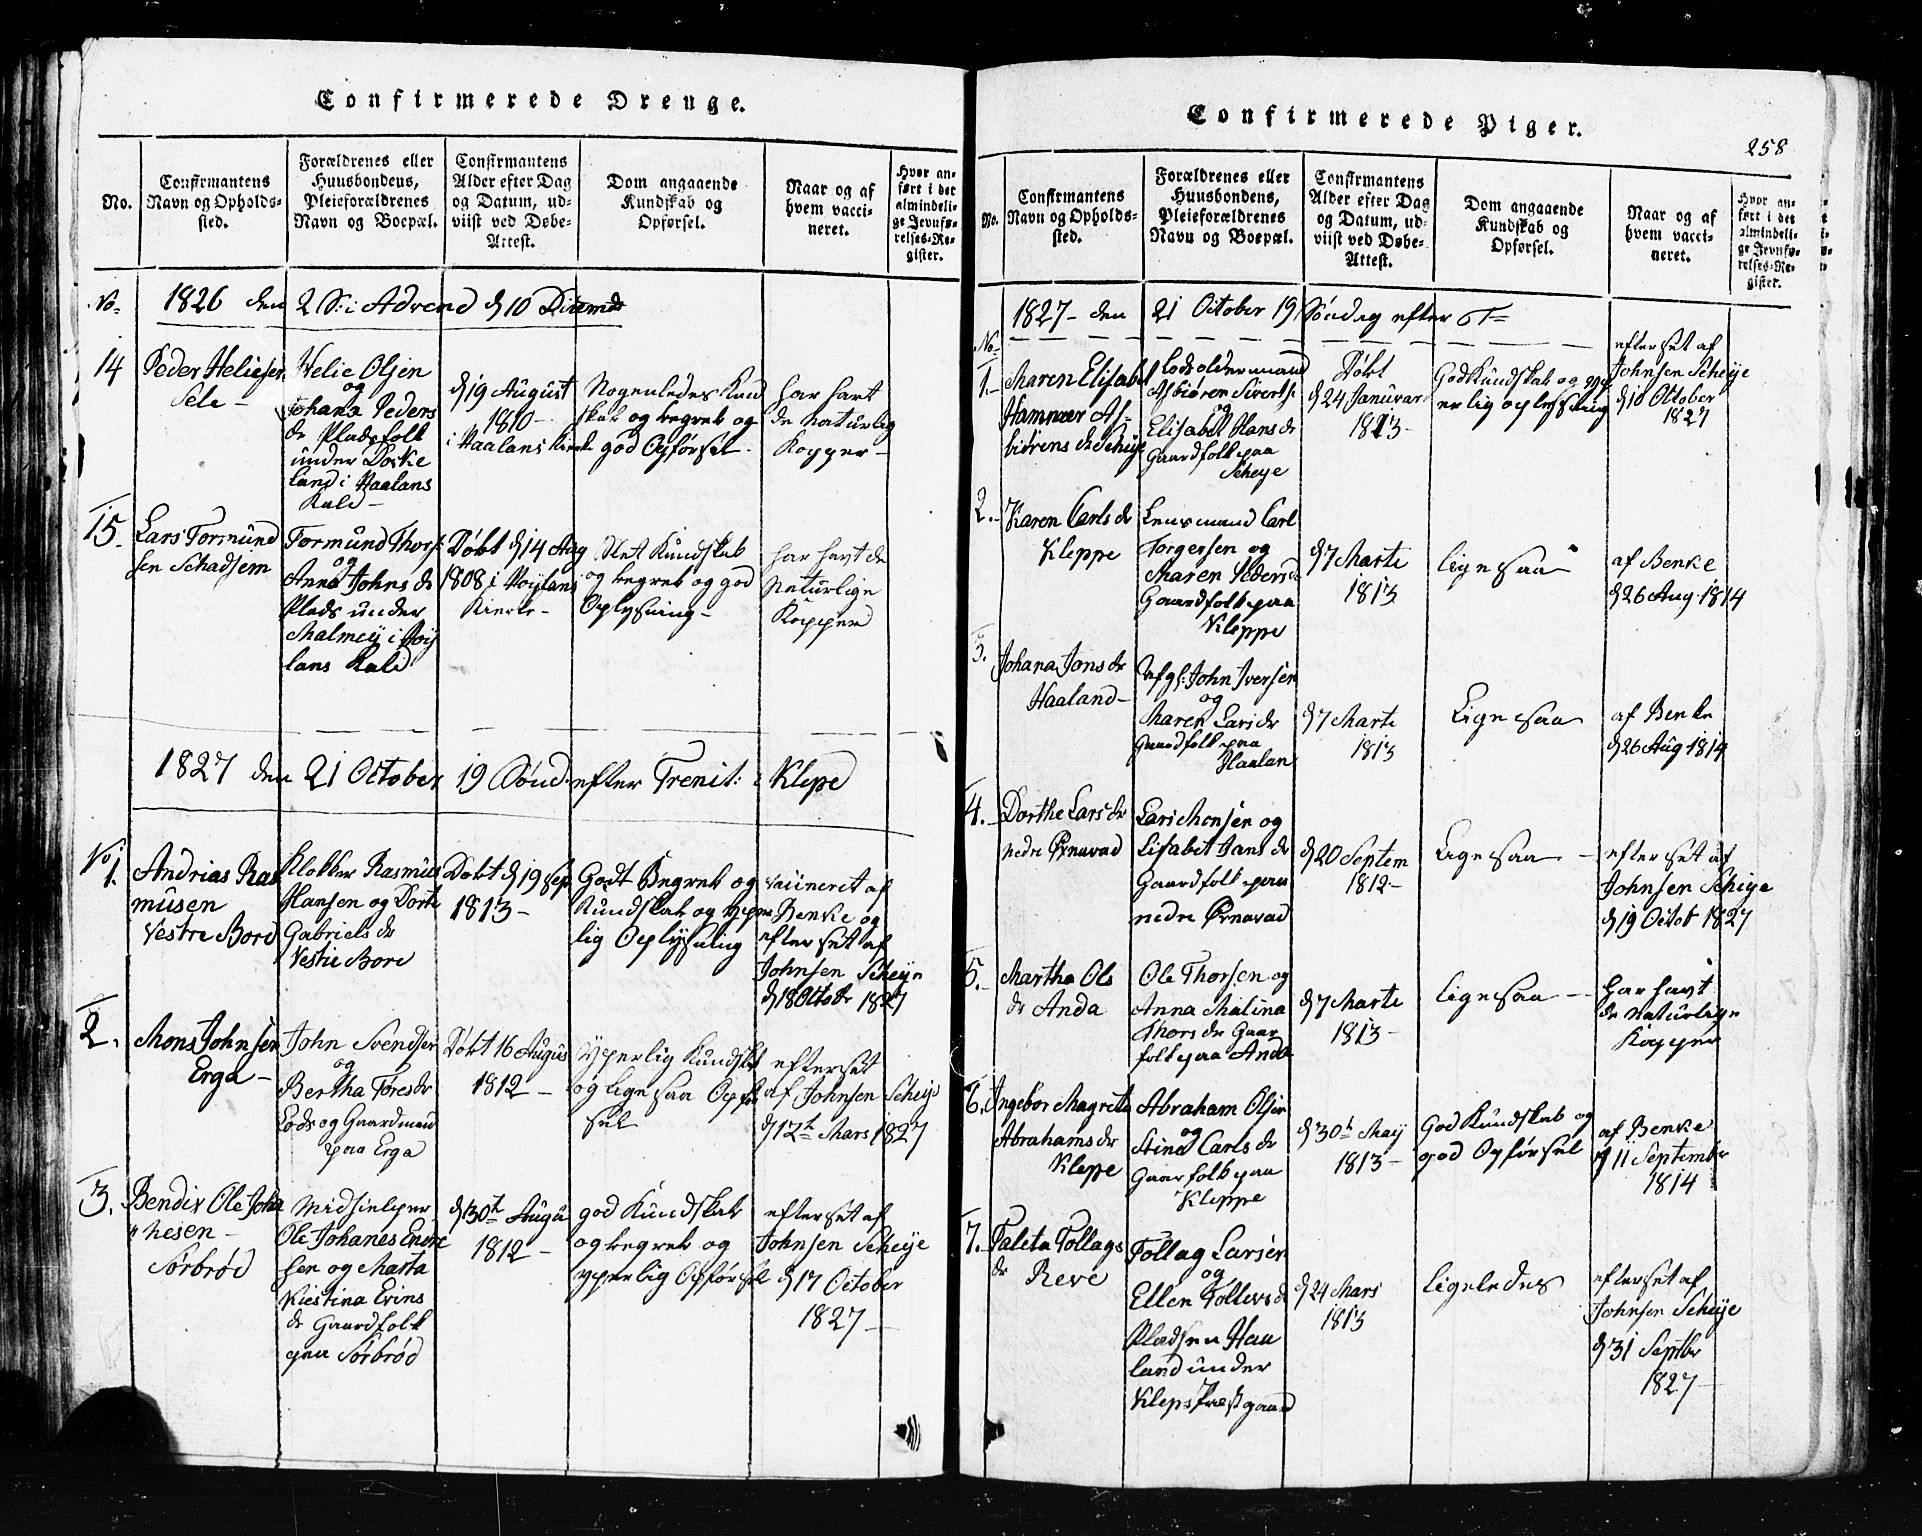 Confirmerede Drenge.
No.
Confirmantens
Navn og Opholds-
sted.
Forældrenes eller
Huusbondens,
Pleieforældrenes
Navn og Boepæl.
Confirmantens
Alder efter Dag
og Datum, ud-
viist ved Døbe-
Attest.
Dom angaaende
Kundskab og
Opførsel.
Naar og af
hvem vacci-
neret.
Hvor an-
ført i det
almindeli-
ge Jevnfø-
relses-Re-
gister.
No 1826 den 2 S: i Advend d 10 Disemb
14
Peder Heliesen
Sele -
Helie Olsen
og
Johana Peders
dr Pladsfolk
under
land i Haalans
Kald -
d 19 August
1810 -
i Haalans Kierk
Nogenledes Kund
skab og begreb og
god Opførsel -
har havt
de naturlig
Kopper -
15
Lars Tormund
sen Schadsem
Tormund Thors
og
Anna Johns dr
Plads under
Malmey i Høy
lans Kald
Døbt d 14 Aug
1808 i Høylans
Kierke -
Slet Kundskab
og begreb og god
Oplysning -
har havt de
Naturlige
Kopper
1827 den 21 October 19 Sønd efter Trenit: i Klepe
No 1.
Andrias Ras
musen
Vestre Bore
Klokker Rasmus
Hansen og Dorte
Gabriels dr
Vestre Bore
Døbt d 19 Sep
1813 -
Godt Begreb og
Kundskab og yper
lig Oplysning
vaiineret af
Benke og
efterset af
Johnsen Scheye
d 18 Octobr 1827
2.
Mons Johnsen
Erga -
John Svendsen
og
Bertha Tores dr
Lods og Gaardmand
paa Erga
Døbt 16 Augus
1812 -
yperlig Kundskb
og ligesaa Opfør
sel
efterset
af Johnsen Scheye
d 12te Mars 1827
3.
Bendix Ole Joha
nesen -
Sørbrød
Ole Johanes Endre
sen og Marta
Kiestina Erins
dr Gaardfolk
paa Sørbrød
d 30te Augu
1812 -
god Kundskab
og begreb og
yperlig Opførsel
efterset af
Johnsen Scheye
d 17 October
1827 -
Confirmerede Piger.
258
No.
Confirmantens
Navn og Opholds-
sted.
Forældrenes eller
Huusbondens,
Pleieforældrenes
Navn og Boepæl.
Confirmantens
Alder efter Dag
og Datum, ud-
viist ved Døbe-
Attest.
Dom angaaende
Kundskab og
Opførsel.
Naar og af
hvem vacci-
neret.
Hvor an-
ført i det
almindeli-
ge Jevnfø-
relses-Re-
gister.
1827 - den 21 October 19 Søndag efter T
No
1.
Maren Elisabet
Hammer As-
biørens dr Scheye
Lodsoldermand
Asbiøren Sivertse
og
Elisabet Hans dr
Gaardfolk paa
Scheye
Døbt
d 24 Januvar
1813 -
God Kundskab og yp
erlig oplysning
efterset af
Johnsen Scheye
d 18 October
1827
2.
Karen Carls dr
Kleppe
Lensmand Carl
Torgersen og
Maren Peders dr
Gaardfolk paa
Kleppe
d 7 Marti
1813
ligesaa
af Benke
d 26 Aug 1814
3.
Johana Jons dr
Haaland -
Afg: John Iversen
og
Maren Lars dr
Gaardfolk paa
Haalan
d 7 Marti
1813
Ligesaa
af Benke
d 26 Aug 1814
4.
Dorthe Lars dr
nedre Øxnavad
Lars Monsen og
Lisabet Jans dr
Gaardfolk paa
nedre Øxnavad
d 20 Septem
1812 -
Ligesaa -
efterset af
Johnsen Scheye
d 19 Octob 1827
5.
Martha Ols
dr Anda
Ole Thorsen og
Anna Malina
Thors dr Gaar
folk paa Anda
d 7 Marti
1813 -
ligesaa -
har havt
de Naturlige
Kopper
6.
Ingebor Magreta
Abrahams dr
Kleppe
Abraham Olsen
og
Stina Carls dr
Gaarfolk paa
Kleppe
d 30te May
1813 -
God Kundskab og
god Opførsel
af Benke
d 11 September
1814
7.
Taleta Tollags
dr Reve
Tollag Larsen
og
Ellen Tollevs dr
Pladsen Haa
land under
Kleps Præstgaard
d 24 Mars
1813
ligeledes
efterset af
Johnsen Scheye
d 31 Septbr
1827 -